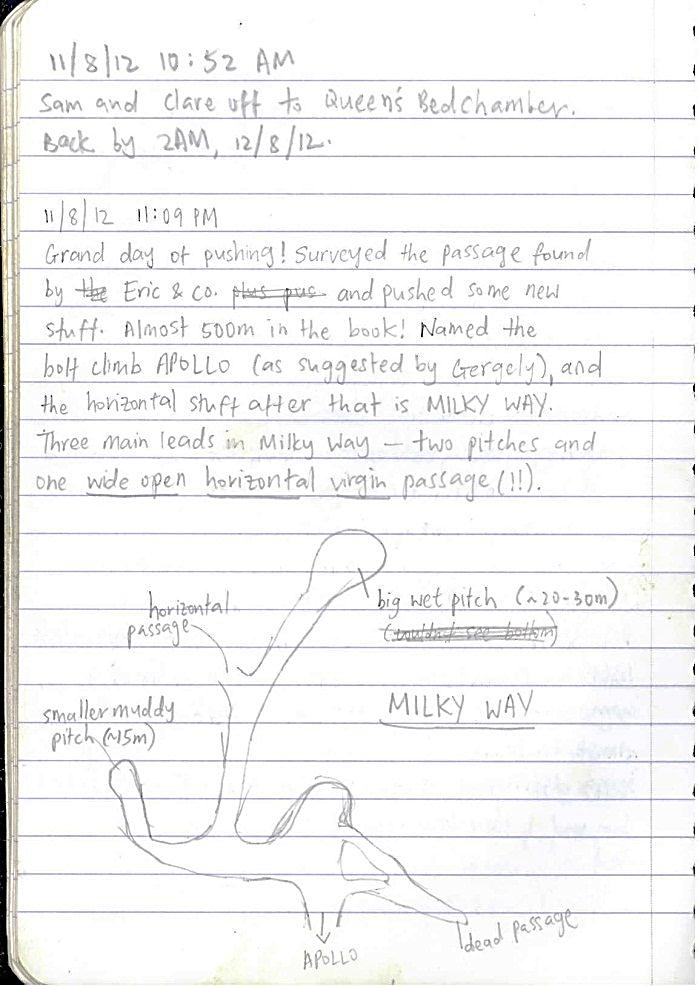 11/8/12 10:52 AM
Sam and Clare off to Queen's Bedchamber.
Back by 2AM, 12/8/12.
11/8/12 11:09 PM
Grand day of pushing! Surveyed the passage found
by the Eric & co. plus pus and pushed some new
stuff. Almost 500m in the book! Named the
bolt climb APOLLO (as suggested by Gergely), and
the horizontal stuff after that is MILKY WAY.
Three main leads in Milky Way – two pitches and
one wide open horizontal virgin passage (!!).
big wet pitch (~20-30m)
(couldn't see bottom)
horizontal
passage
MILKY WAY
smaller muddy
pitch (~15m)
dead passage
APOLLO